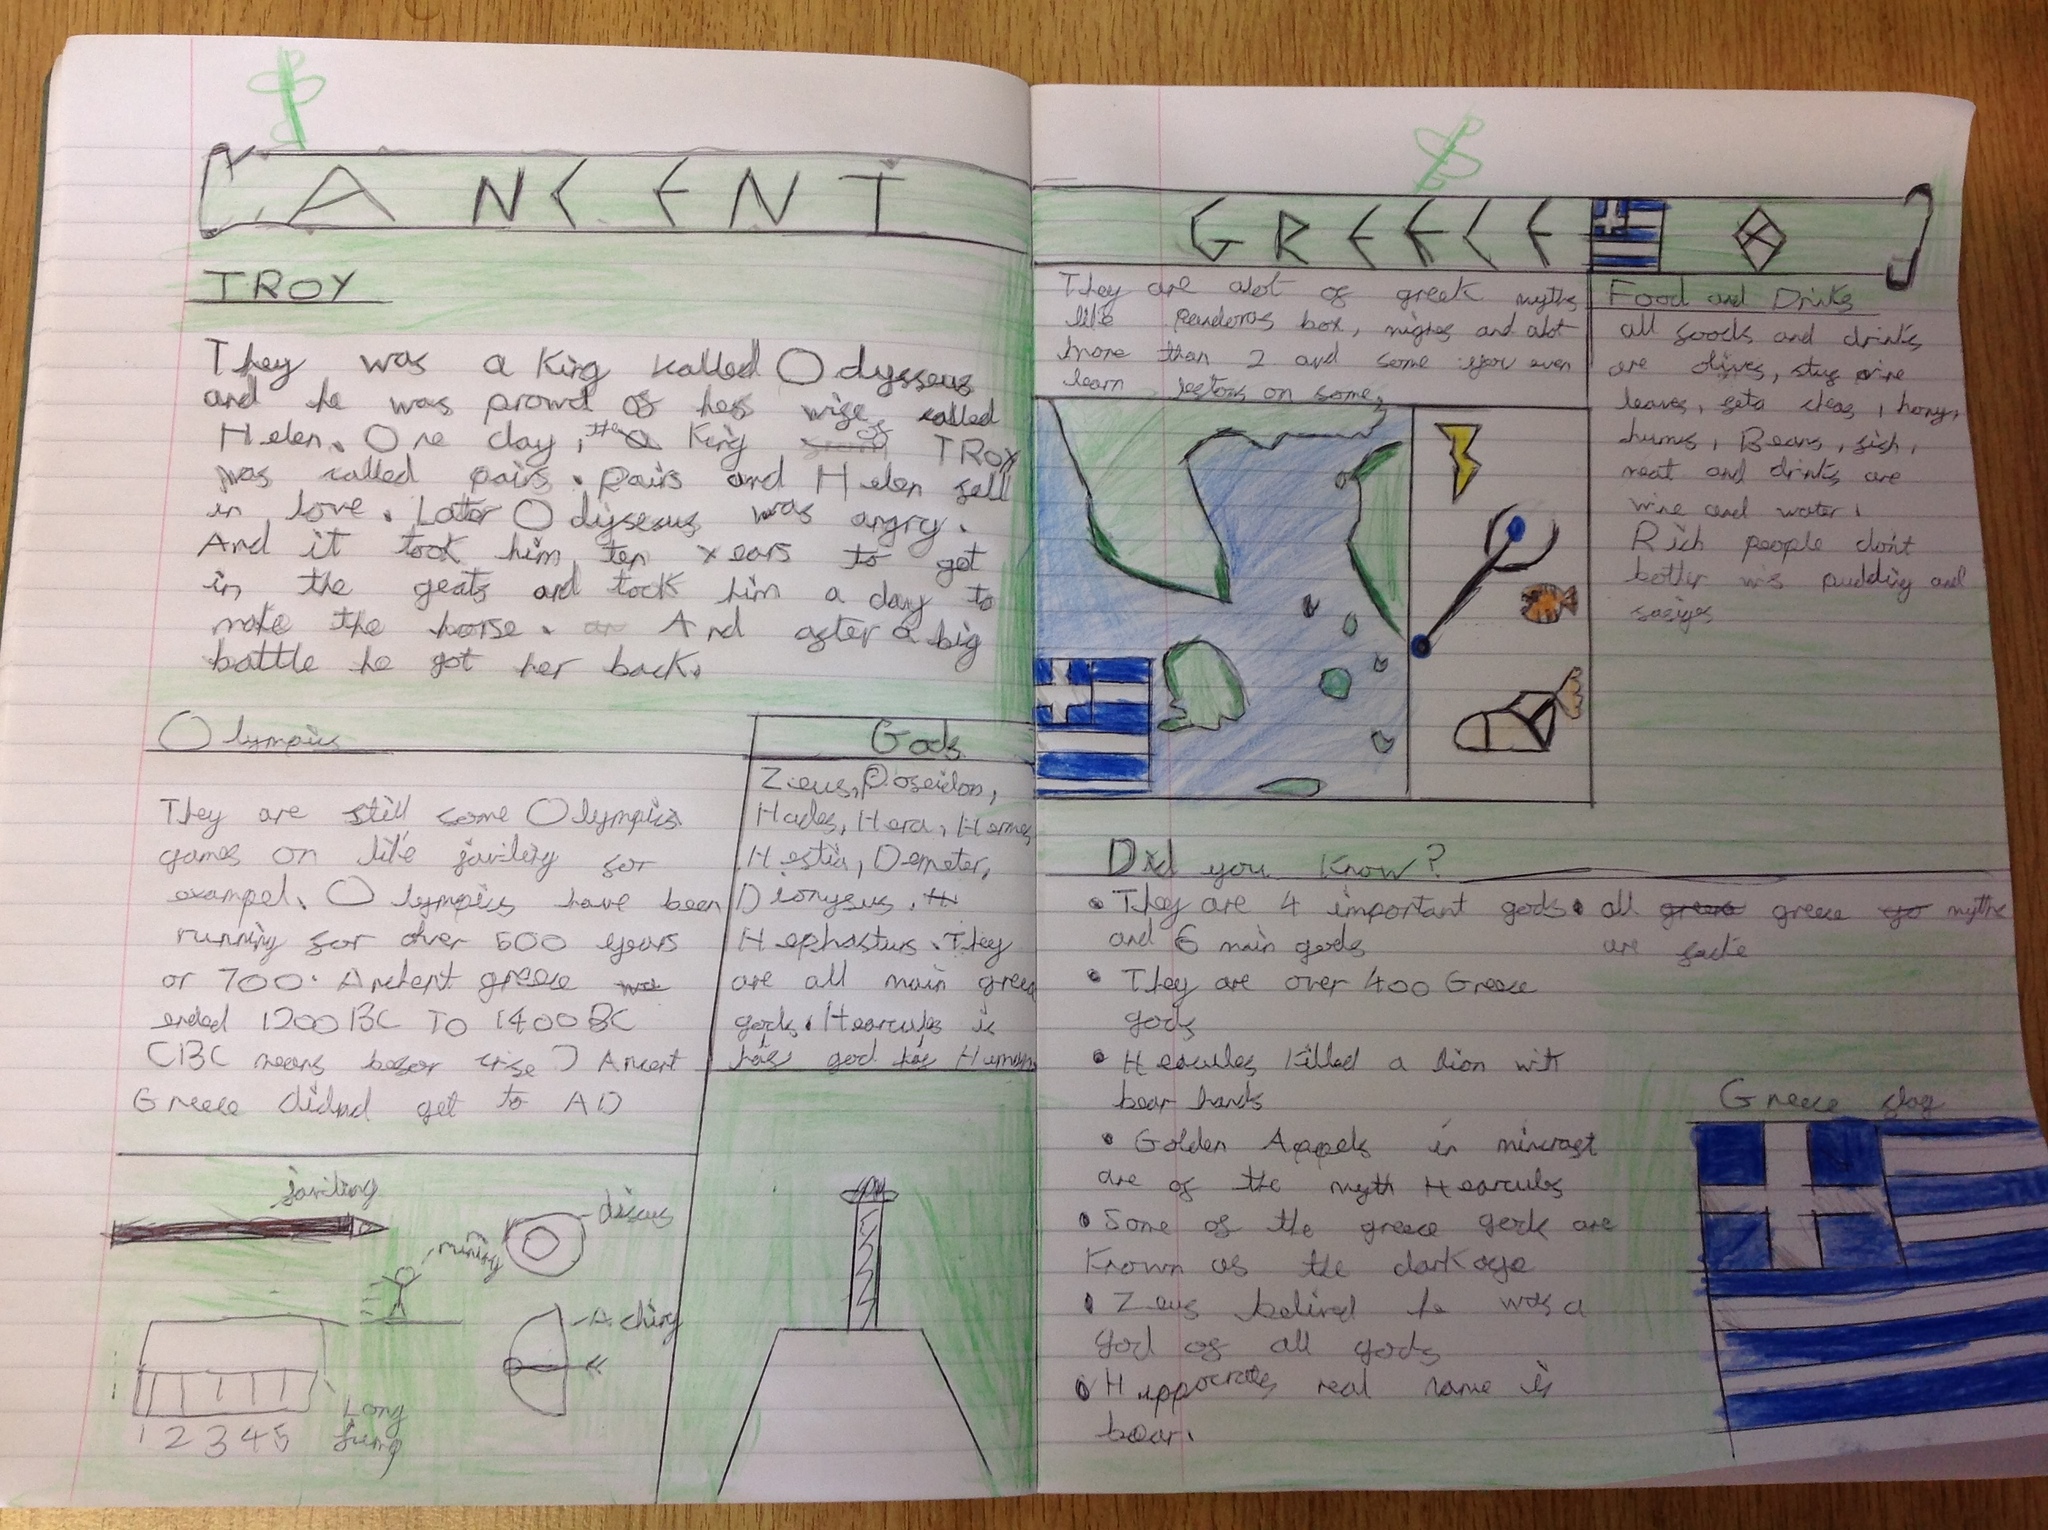 ANCENT
TROY
They was a King called Odysseus
and he was prowd of hes wife called
Helen. One day, the King of TROY
was called pairs. pairs and Helen fell
in love. Later Odyseus was angry.
And it took him ten years to get
in the geats and took him a day to
make the horse. And after a big
battle he got her back.
Olympics
They are still some Olympics
games on like javiling for
exampel. Olympics have been
running for over 600 years
or 700. Anchent greece
ended 1200BC TO 1400BC
(BC means befor crise) Ancent
Greece didnd get to AD
Gods
Zeus, Poseidon,
Hades, Hera, Hermes
Hestia, Demeter,
Dionysus,
Hephastus. They
are all main greece
gods. Hearcules is
haf god haf Human
javiling
discus
runing
A.ching
Long
Jump
1 2 3 4 5
GREECE
They are alot of greek myths
like pandoras box, and alot
more than 2 and some you even
learn lestons on some,
Food and Drinks
all foods and drinks
are olives, vine
leaves, feta chees, hony,
humus, Beans, fish,
meat and drinks are
wine and water.
Rich people don't
bother wif pudding and
Did you Know?
• They are 4 important gods
and 6 main gods
• all greece myths
are
• They are over 400 Greece
gods
• Hearcules killed a lion with
bear hands
• Golden Appels in mincraft
are of the myth Hearcules
• Some of the greece are
Known as the dark age
• Zeus belived he was a
god of all gods
• Huppocrates real name is
boar.
Greece flag